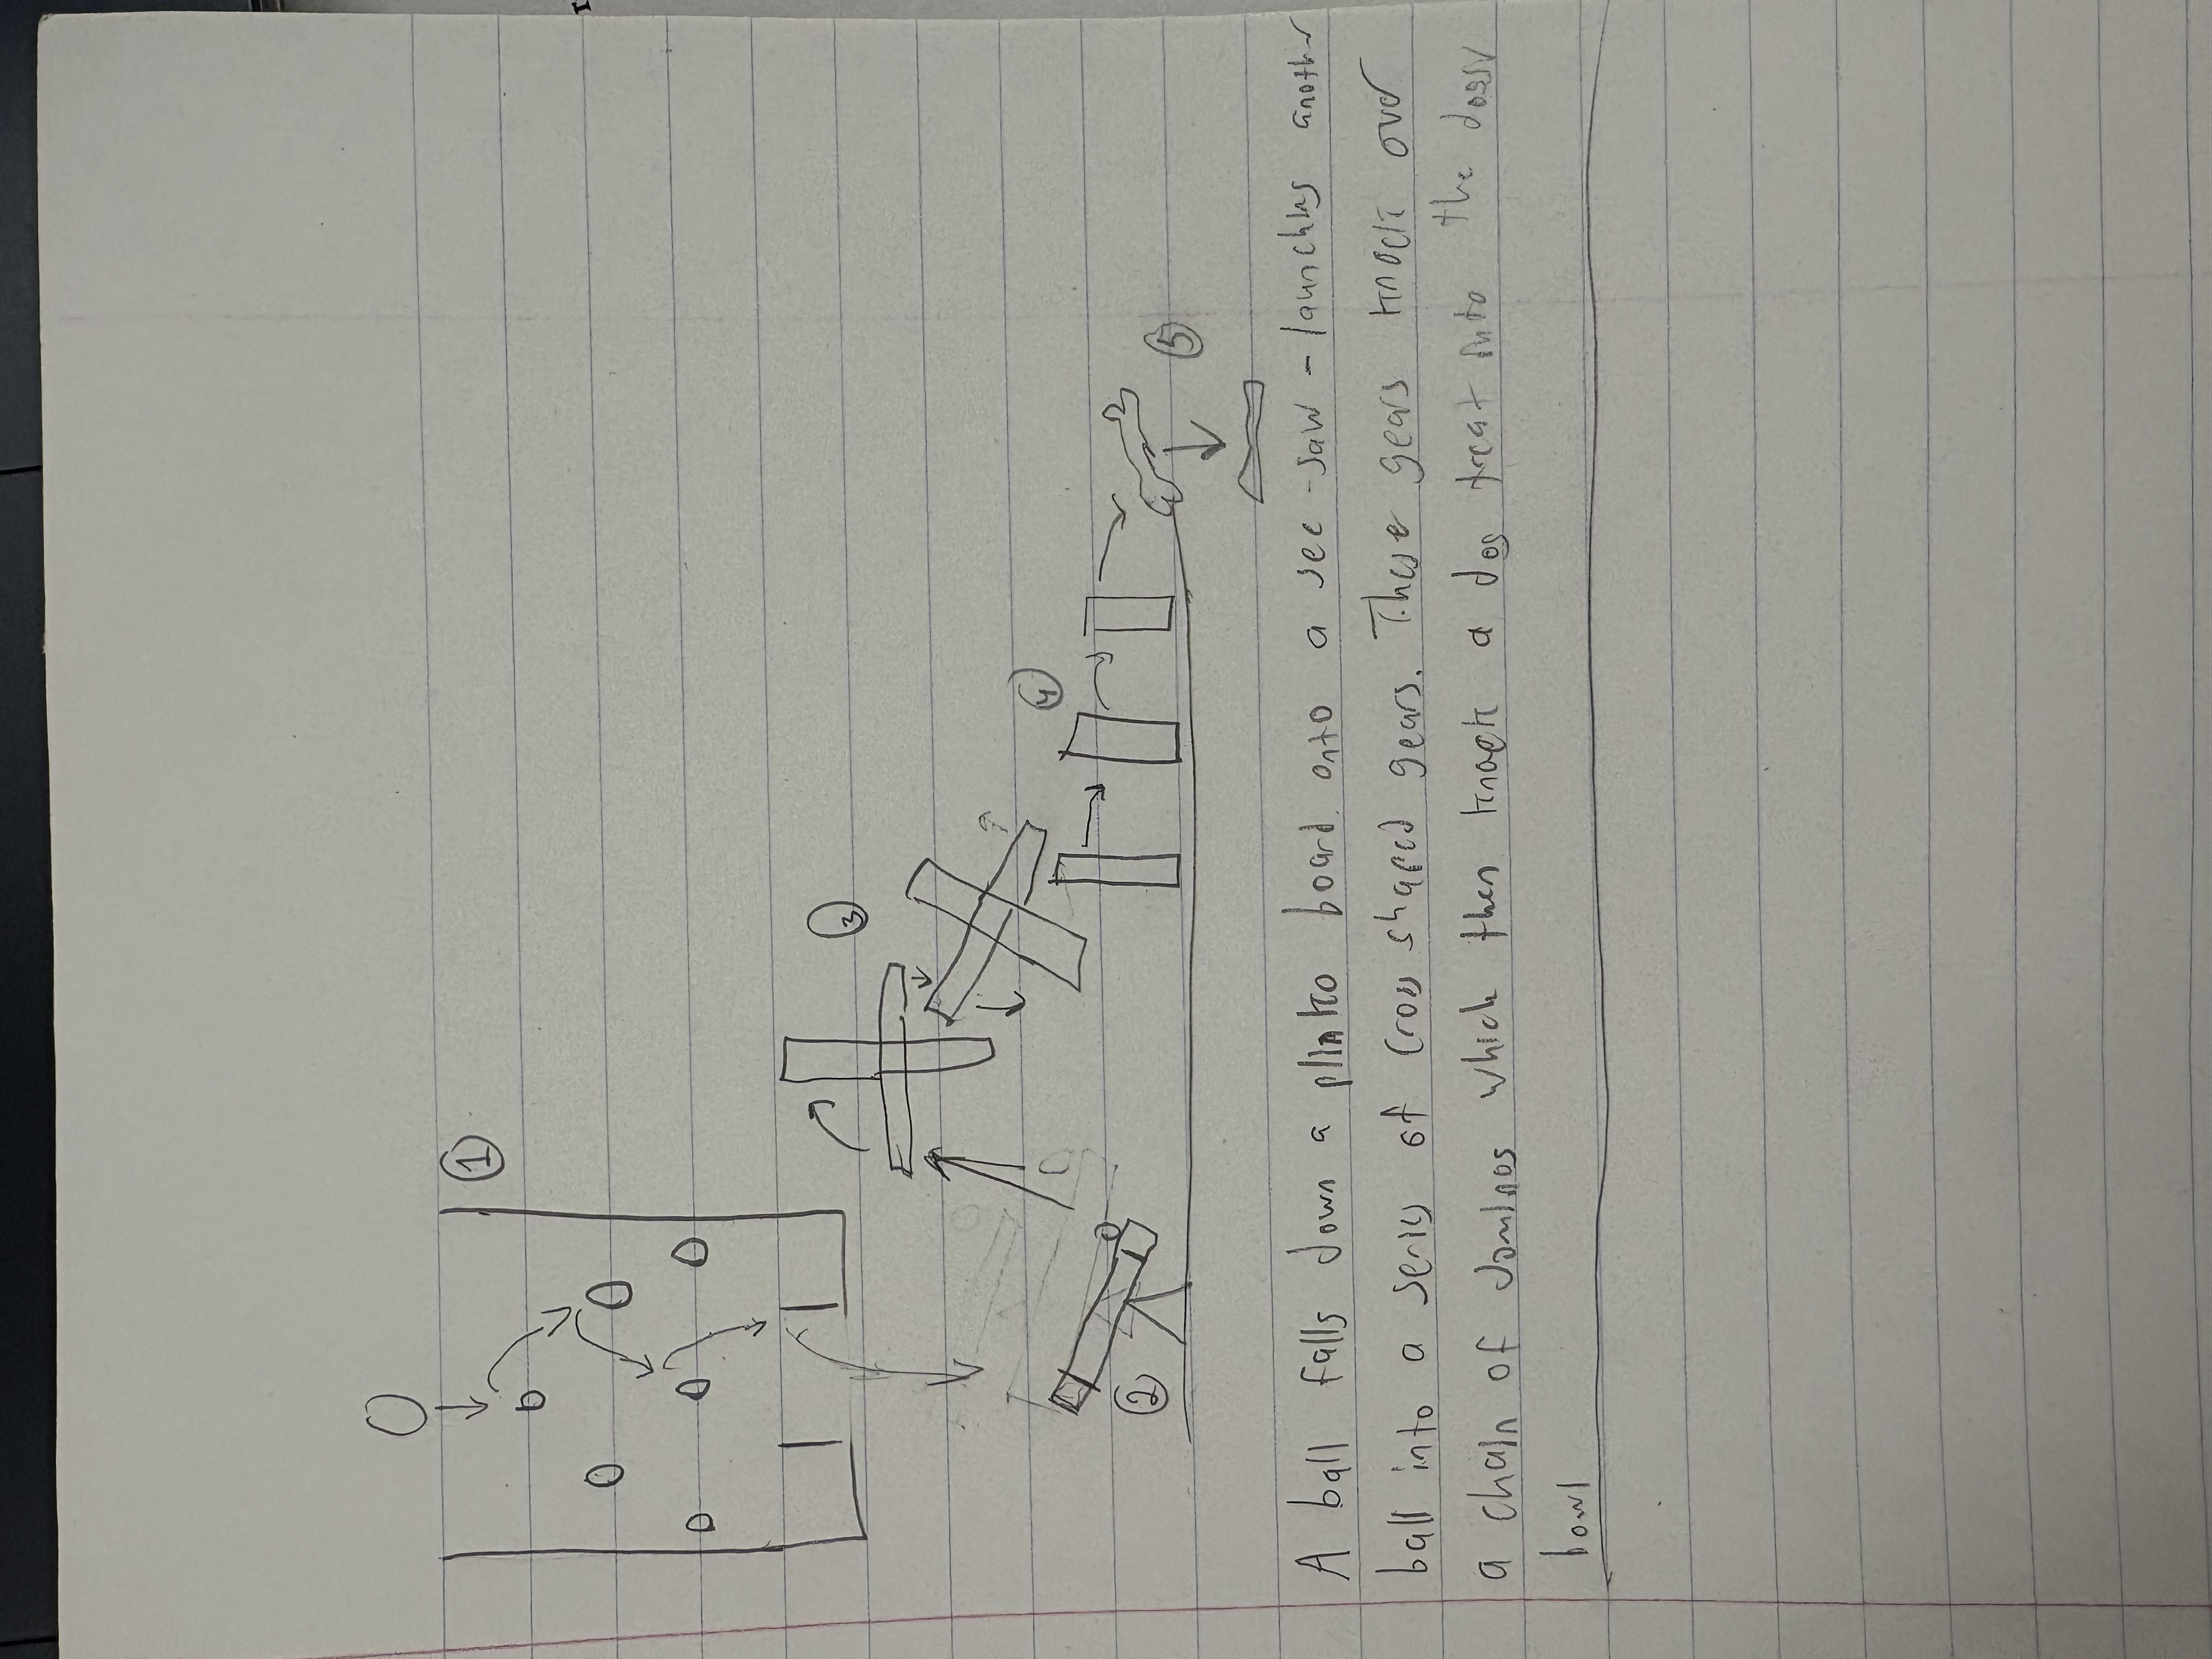 ①
③
④
②
⑤
A ball falls down a plinko board onto a see-saw - launching another
ball into a series of cross shaped gears. These gears knock over
a chain of dominos which then knock a dog treat into the
bowl